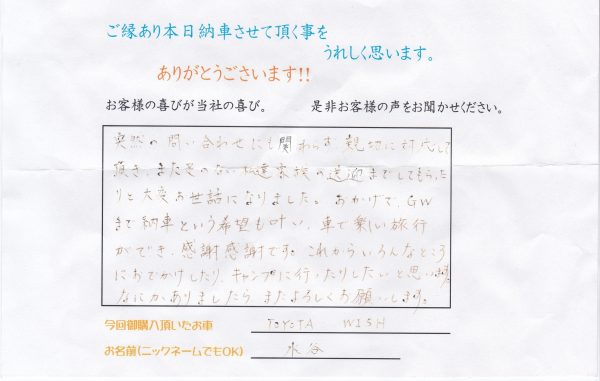 ご縁あり本日納車させて頂く事を
うれしく思います。
ありがとうございます!!
お客様の喜びが当社の喜び。 是非お客様の声をお聞かせください。
突然の問い合わせにも関わらず、親切に対応して
頂き、また足のない私達家族の送迎までしてもらった
りと大変お世話になりました。おかげで、GW
まで納車という希望も叶い、車で楽しい旅行
ができ、感謝感謝です。これからいろんなところ
におでかけしたり、キャンプに行ったりしたいと思います。
なにかありましたら、またよろしくお願いします。
今回御購入頂いたお車 TOYOTA WISH
お名前(ニックネームでもOK) 水谷